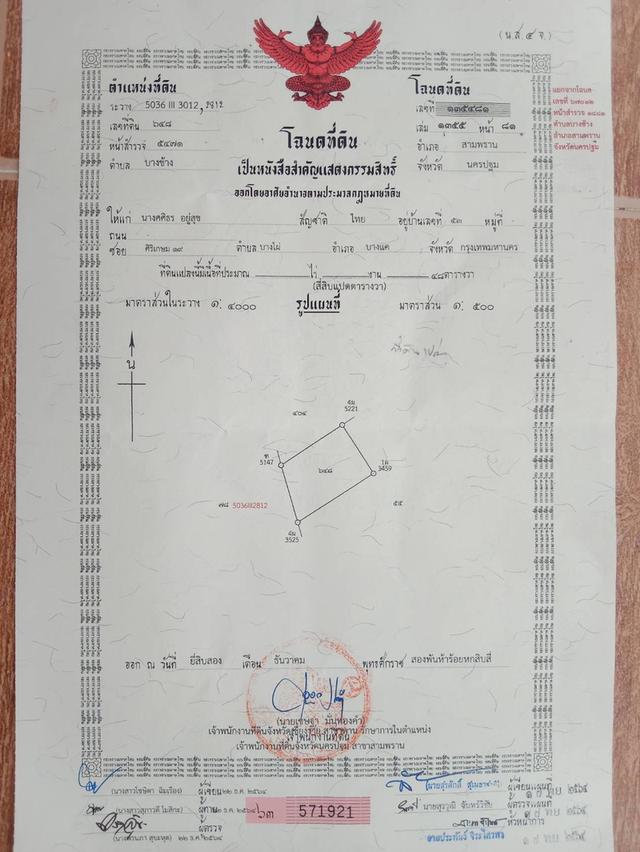 (น.ส.๔ จ.)
ตำแหน่งที่ดิน
ระวาง 5036 III 3012
เลขที่ดิน ๖๔๘
หน้าสำรวจ ๕๔๗๑
ตำบล บางช้าง
โฉนดที่ดิน
เลขที่ ๑๓๕๔๘๑
เล่ม ๑๓๕๕ หน้า ๘๑
อำเภอ สามพราน
จังหวัด นครปฐม
แยกจากโฉนด
เลขที่
หน้าสำรวจ
ตำบลบางช้าง
อำเภอสามพราน
จังหวัดนครปฐม
โฉนดที่ดิน
เป็นหนังสือสำคัญแสดงกรรมสิทธิ์
ออกโดยอาศัยอำนาจตามประมวลกฎหมายที่ดิน
ให้แก่ นางศศิธร อยู่สุข สัญชาติ ไทย อยู่บ้านเลขที่ ๕๓ หมู่ที่
ถนน
ซอย ศิริเกษม ๑๙ ตำบล บางไผ่ อำเภอ บางแค จังหวัด กรุงเทพมหานคร
ที่ดินแปลงนี้มีเนื้อที่ประมาณ ไร่ งาน ๔๘ ตารางวา
(สี่สิบแปดตารางวา)
มาตราส่วนในระวาง ๑: ๔๐๐๐ รูปแผนที่ มาตราส่วน ๑: ๕๐๐
น
๔๐๔
5221
5147
๖๔๘
3459
๗๘ 5036III2812
๕๕
3525
ออก ณ วันที่ ยี่สิบสอง เดือน ธันวาคม พุทธศักราช สองพันห้าร้อยหกสิบสี่
(นายเชษฐา มั่นทองคำ)
เจ้าพนักงานที่ดินจังหวัดเชียงราย สาขาพาน รักษาการในตำแหน่ง
เจ้าพนักงานที่ดิน
เจ้าพนักงานที่ดินจังหวัดนครปฐม สาขาสามพราน
ผู้เขียน ๒๒ ธ.ค. ๒๕๖๔
ผู้ทาน ๒๒ ธ.ค. ๒๕๖๔
ผู้ตรวจ ๒๒ ธ.ค. ๒๕๖๔
๖๓ 571921
ผู้เขียนแผนที่
ผู้ตรวจแผนที่
หัวหน้าการ